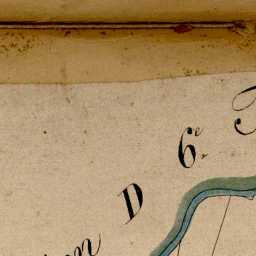 on D 6.e